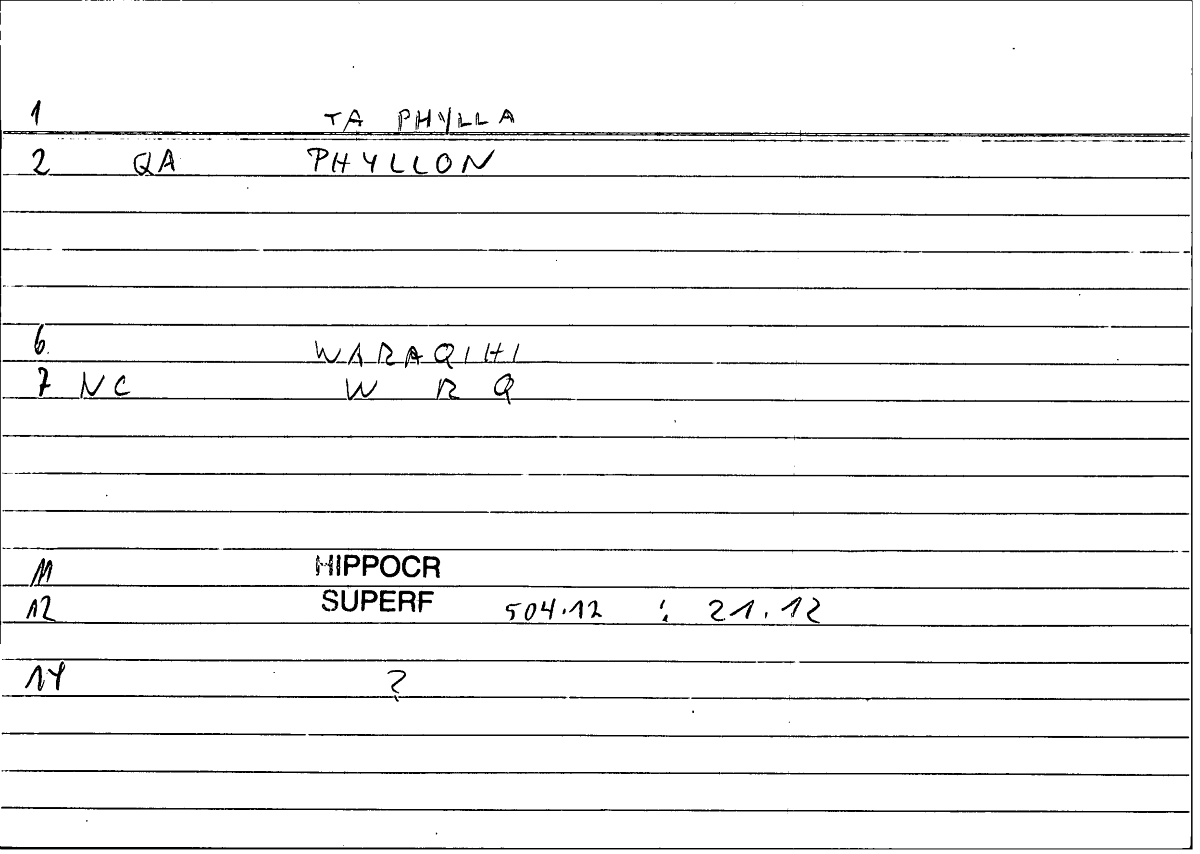 1 TA PHYLLA
2 QA PHYLLON
6 WARAQIHI
7 NC W R Q
11 HIPPOCR
12 SUPERF 504.12 : 21.12
14 ?